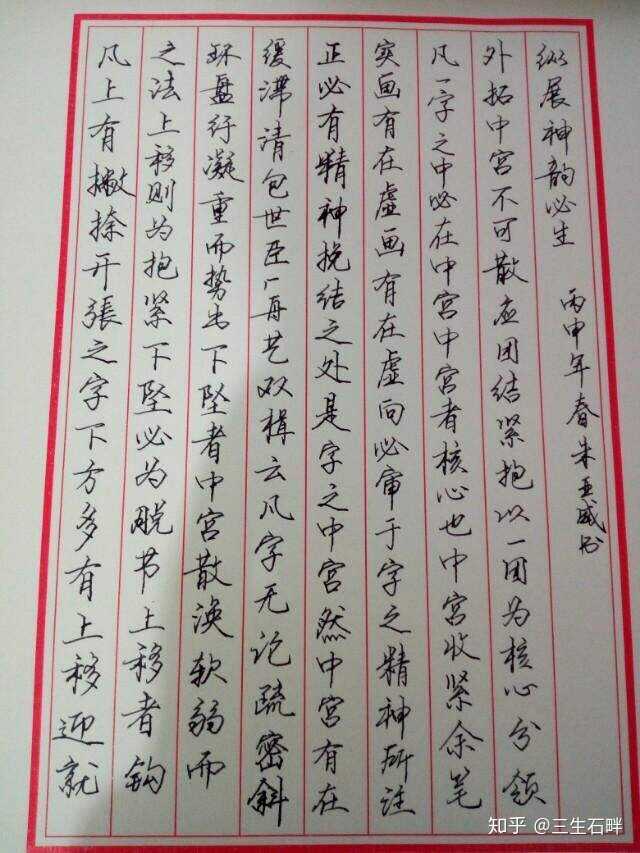 凡上有撇捺开張之字下方多有上移迎就
之法上移则为抱紧下坠必为脱节上移者钩
环盘纡凝重而势出下坠者中宫散涣软弱而
缓滞清包世臣广舟艺双楫云凡字无论疏密斜
正必有精神挽结之处是字之中宫然中宫有在
实画有在虚画有在虚向必审于字之精神所注
凡一字之中必在中宫中宫者核心也中宫收紧余笔
外拓中宫不可散应团结紧抱以一团为核心分领
纵展神韵必生 丙申年春朱亚威书
知乎 @三生石畔